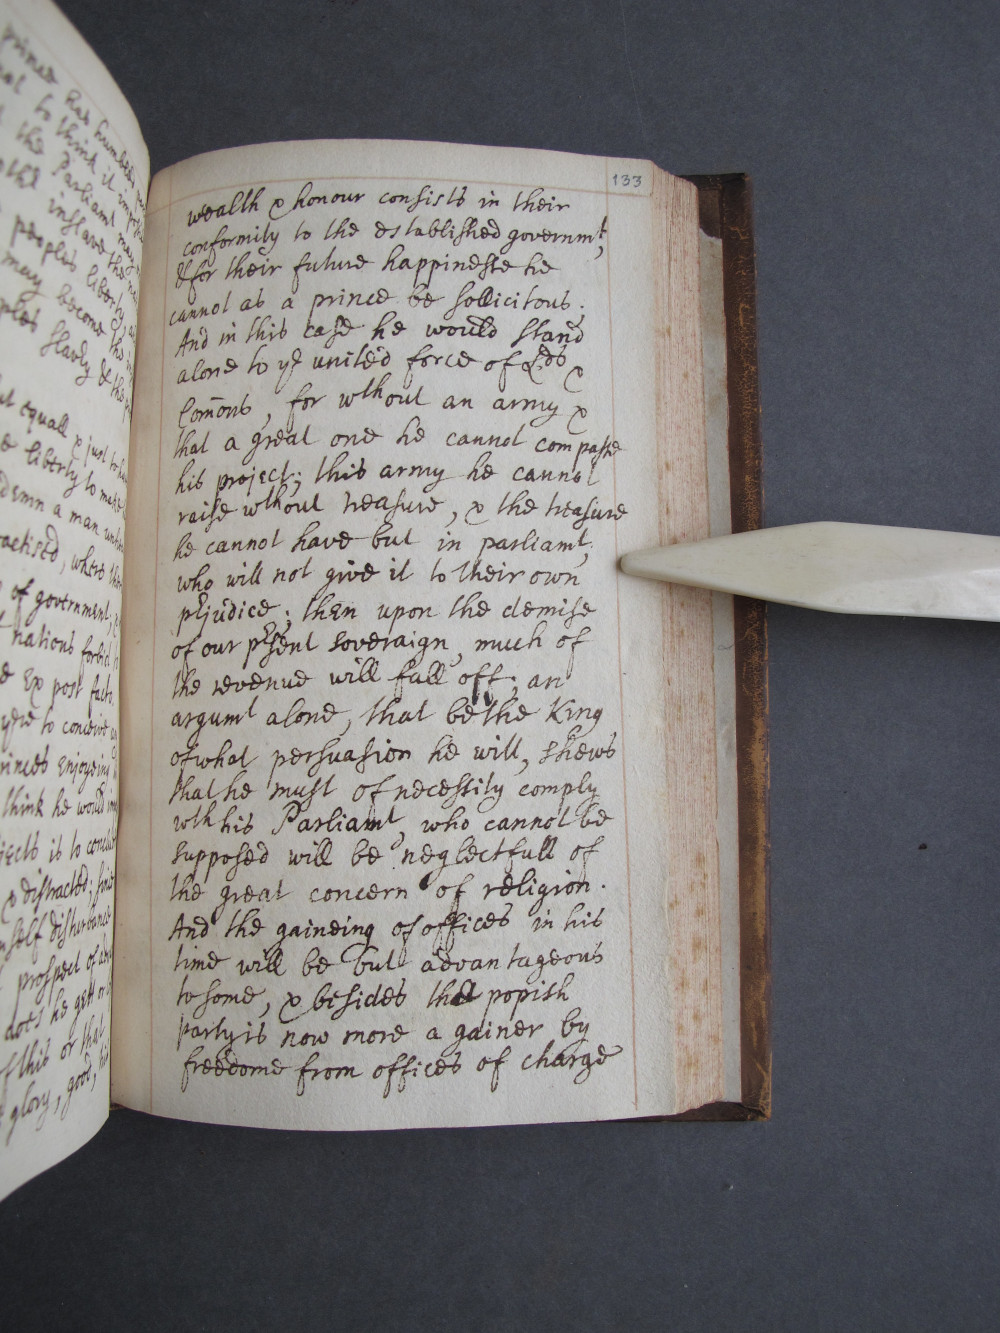 prince has humbled
to think it
the Parliamt may
inslave the
peoples liberty,
may become the
slavly & the
equall & just to
liberty to make
a man
practised, where
of government,
nations forbid
Ex post facto.
to conceive
princes enjoying
think he would
is to conclude
& distracted;
self disturbance
prospect of
does he gett or
If this or that
glory, good, his
133
wealth & honour consists in their
conformity to the established governmt,
& for their future happinesse he
cannot as a prince be sollicitous.
And in this case he would stand
alone to ye united force of Lds &
Comons, for wthout an army &
that a great one he cannot compasse
his project; this army he cannot
raise wthout treasure, & the treasure
he cannot have but in parliamt,
who will not give it to their own
prejudice; then upon the demise
of our present soveraign, much of
the revenue will fall off; an
argumt alone, that be the King
of what persuasion he will, shews
that he must of necessity comply
wth his Parliamt, who cannot be
supposed will be neglectfull of
the great concern of religion.
And the gaineing of offices in his
time will be but advantageous
to some, & besides the popish
party is now more a gainer by
freedome from offices of charge